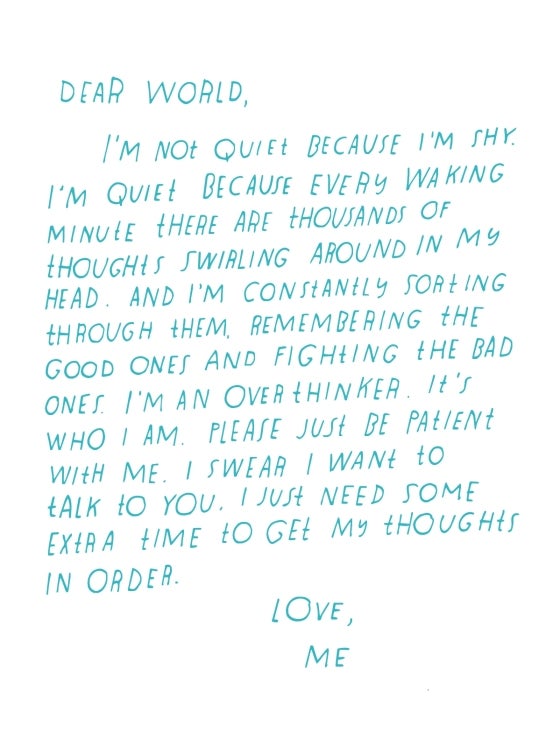 DEAR WORLD,
I'M NOt QUIEt BECAUSE I'M SHY.
I'M QUIEt BECAUSE EVERY WAKING
MINUtE tHERE ARE tHOUSANDS OF
tHOUGHtS SWIRLING AROUND IN MY
HEAD. AND I'M CONStANtLY SORtING
tHROUGH tHEM, REMEMBERING tHE
GOOD ONES AND FIGHtING tHE BAD
ONES. I'M AN OVERtHINKER. It'S
WHO I AM. PLEASE JUSt BE PAtIENt
WItH ME. I SWEAR I WANt tO
tALK tO YOU. I JUSt NEED SOME
EXtRA tIME tO GEt MY tHOUGHtS
IN ORDER.
LOVE,
ME